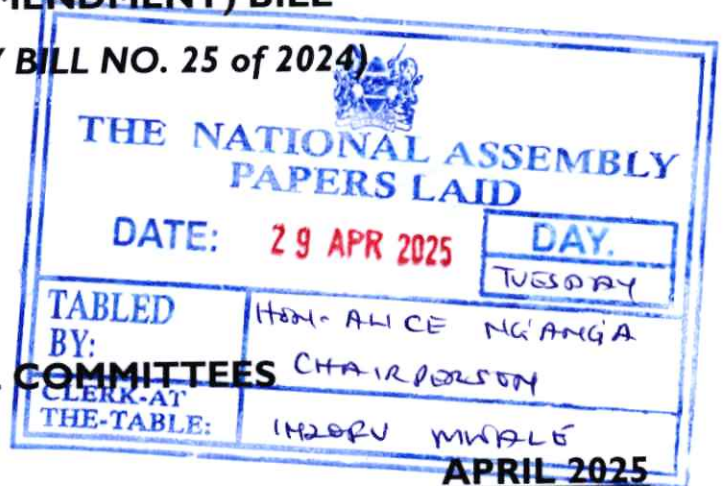 MENDMENT) BILL
Y BILL NO. 25 of 2024)
THE NATIONAL ASSEMBLY
PAPERS LAID
DATE: 29 APR 2025
DAY.
TUESDAY
TABLED BY:
HON. ALICE NG'ANG'A
CHAIRPERSON
COMMITTEES
CLERK-AT
THE-TABLE:
MWALE
APRIL 2025